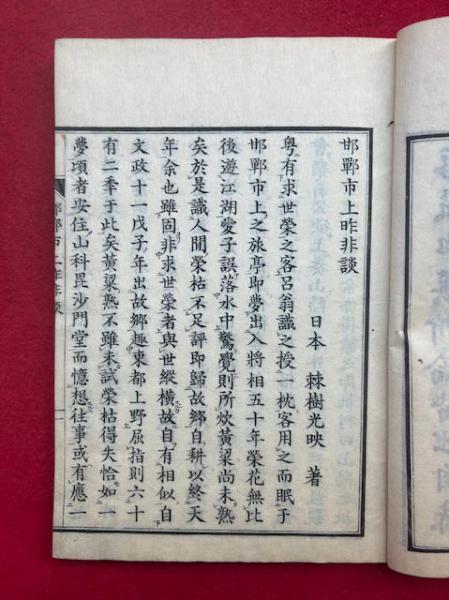 邯鄲市上昨非談
日本 棘樹光映 著
粤有求世榮之客呂翁識之授一枕客用之而眠于
邯鄲市上之旅亭即夢出入將相五十年榮花無比
後遊江湖愛子誤落水中驚覺則所炊黃粱尚未熟
矣於是識人間榮枯不足評即歸故鄉自耕以終天
年余也雖固非求世榮者與世縱橫故自有相似自
文政十一戊子年出故鄉趣東都上野屈指則六十
有二季于此矣黃粱熟不雖未試榮枯得失恰如一
夢頃者安住山科毘沙門堂而憶想往事或有應一
邯鄲市上昨非談
一